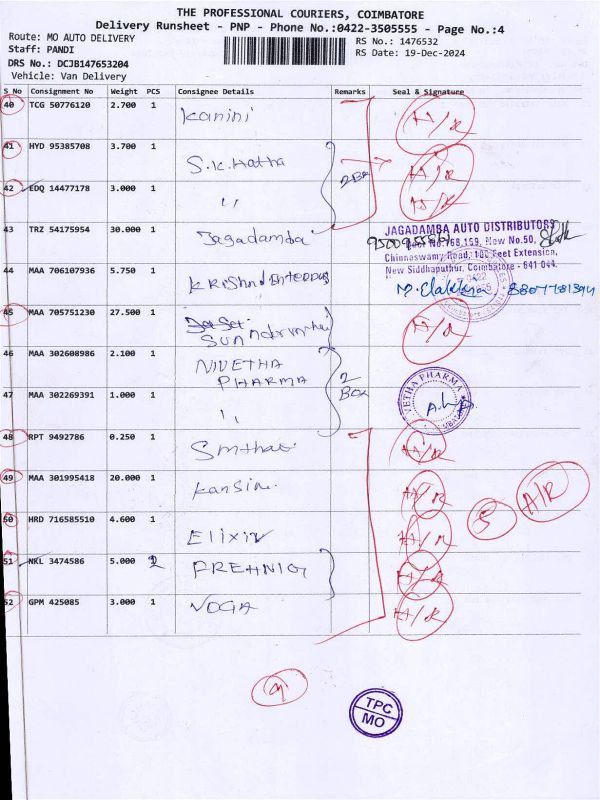 THE PROFESSIONAL COURIERS, COIMBATORE
Delivery Runsheet - PNP - Phone No.:0422-3505555 - Page No.:4
Route: MO AUTO DELIVERY
RS No.: 1476532
Staff: PANDI
RS Date: 19-Dec-2024
DRS No.: DCJB147653204
Vehicle: Van Delivery
S No Consignment No Weight PCS Consignee Details Remarks Seal & Signature
40 TCG 50776120 2.700 1 Kanini A/R
41 HYD 95385708 3.700 1 S.K. Hatha A/R
2 Box
42 EDQ 14477178 3.000 1 ,, A/R
43 TRZ 54175954 30.000 1 Jagadamba
JAGADAMBA AUTO DISTRIBUTORS
Door No.168,169, New No.50,
Chinnaswamy Road, 100 Feet Extension,
New Siddhapudhur, Coimbatore - 641 044.
44 MAA 706107936 5.750 1 Krishna Enterprises
45 MAA 705751230 27.500 1 A/R
46 MAA 302608986 2.100 1 NIVETHA
PHARMA
2
Box
VETHA PHARMA
47 MAA 302269391 1.000 1 ,,
48 RPT 9492786 0.250 1 A/R
49 MAA 301995418 20.000 1 A/R
5 A/R
50 HRD 716585510 4.600 1 Elixir A/R
51 NKL 3474586 5.000 2 PREHNIOT A/R
52 GPM 425085 3.000 1 VOGA A/R
TPC
MO